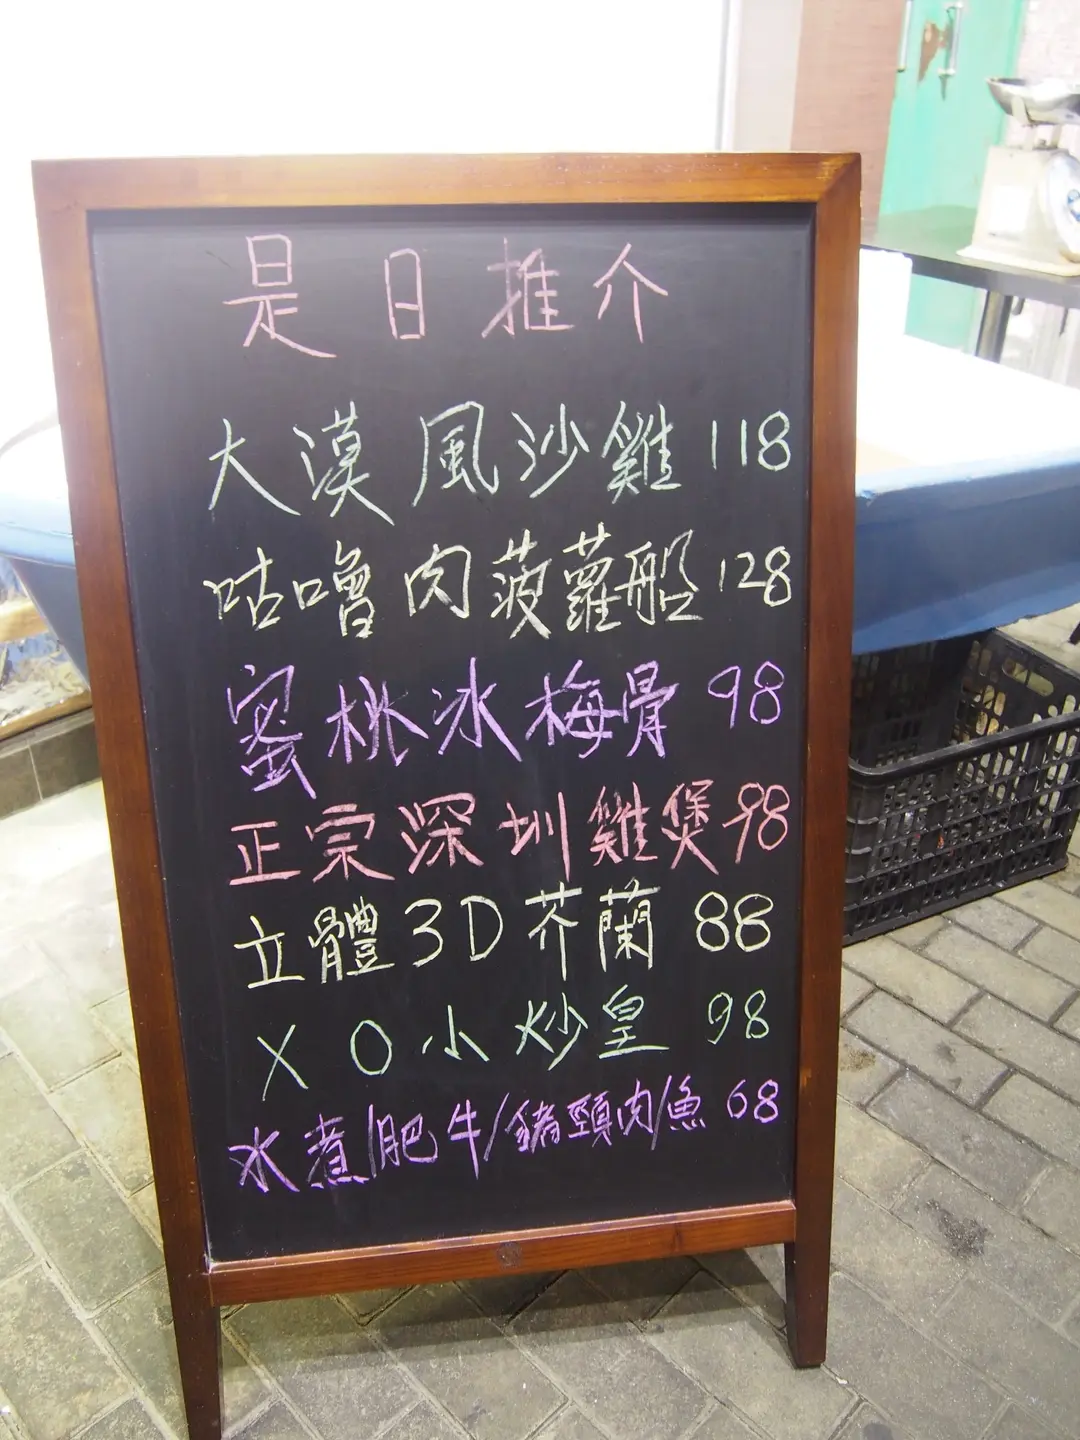 是日推介
大漠風沙雞 118
咕嚕肉菠蘿船 128
蜜桃冰梅骨 98
正宗深圳雞煲 98
立體3D芥蘭 88
XO小炒皇 98
水煮/肥牛/豬頸肉/魚 68